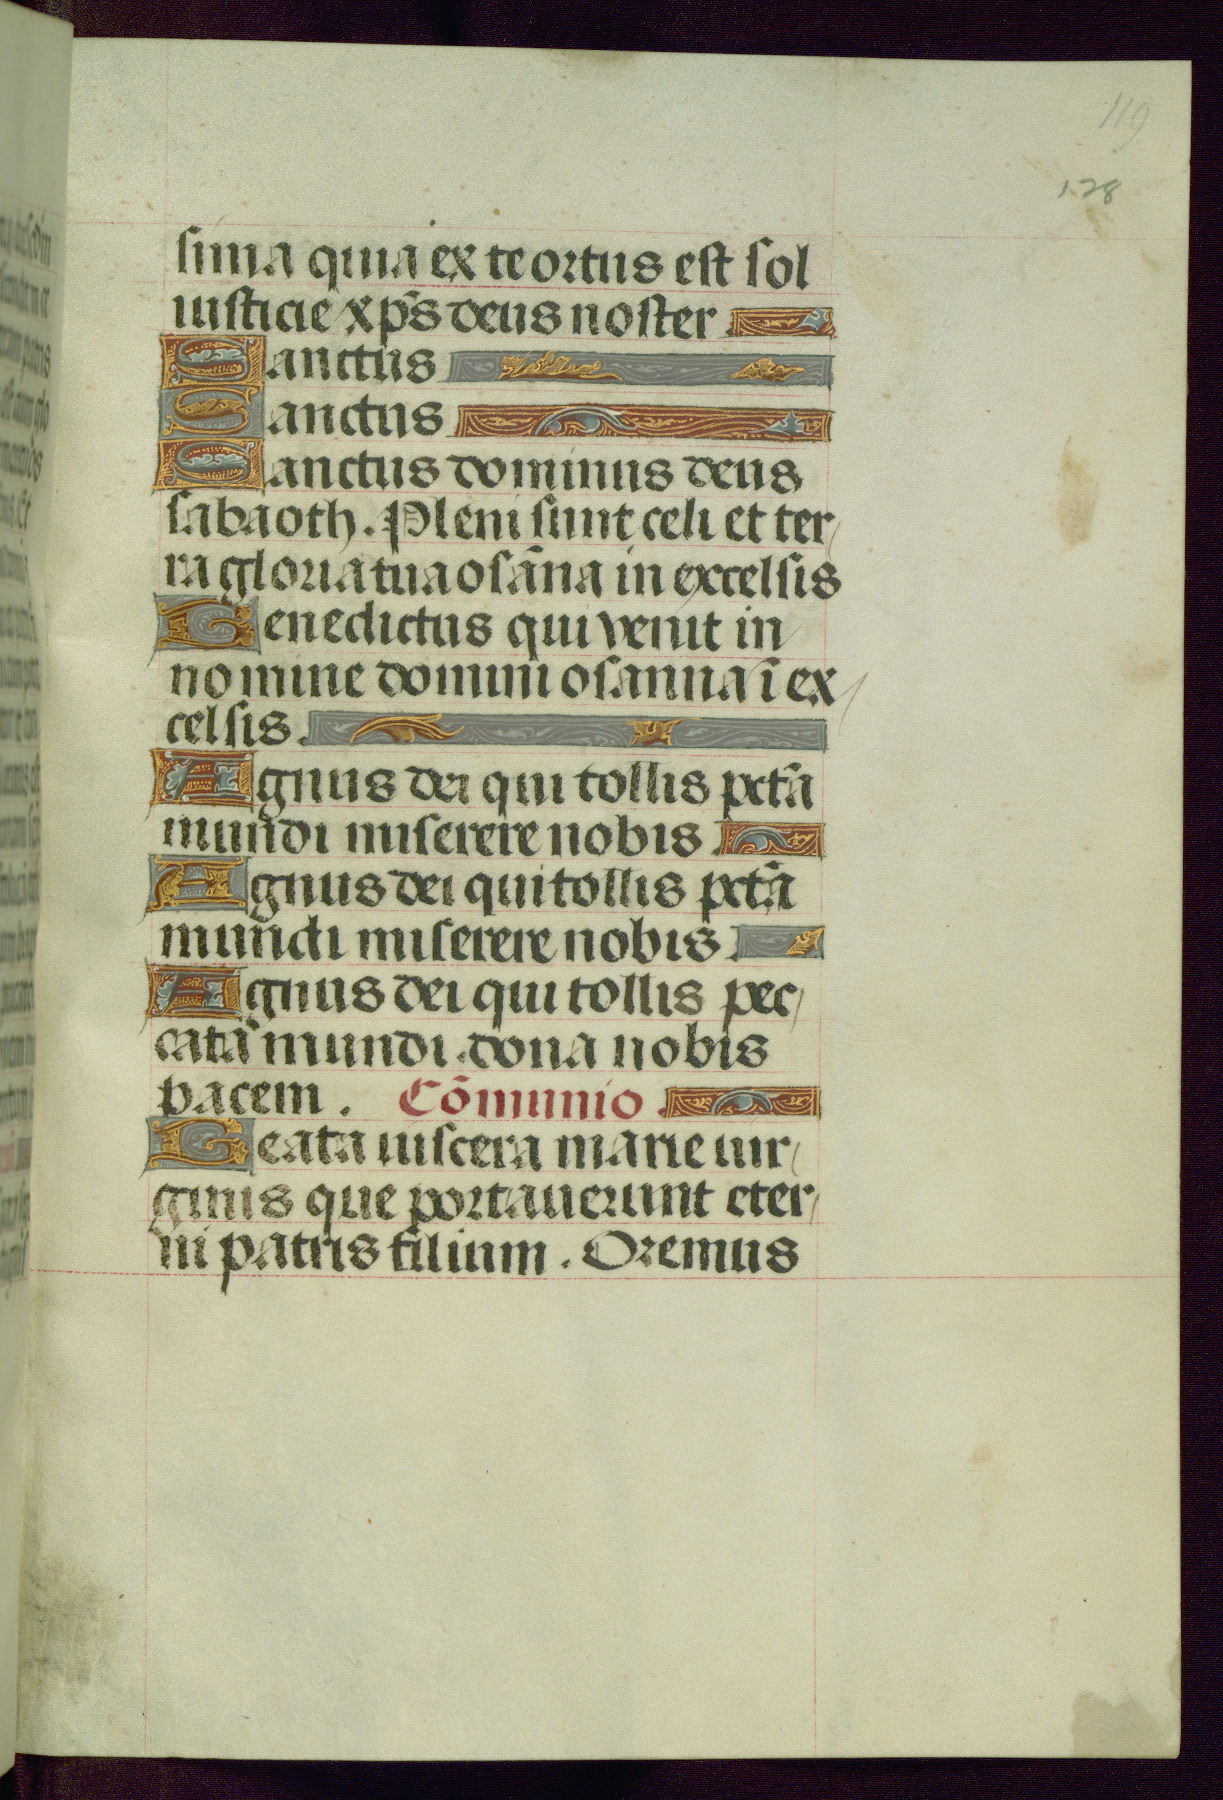 119
128
sima quia ex te ortus est sol
iusticie xp̄s deus noster
Sanctus
Sanctus
Sanctus dominus deus
sabaoth. Pleni sunt celi et ter
ra gloria tua osāna in excelsis
Benedictus qui venit in
nomine domini osanna ī ex
celsis.
Agnus dei qui tollis pctā
mundi miserere nobis.
Agnus dei qui tollis pctā
mundi miserere nobis
Agnus dei qui tollis pec
cata mundi. dona nobis
pacem. Cōmunio.
Beata uiscera marie uir
ginis que portauerunt eter
ni patris filium. Oremus